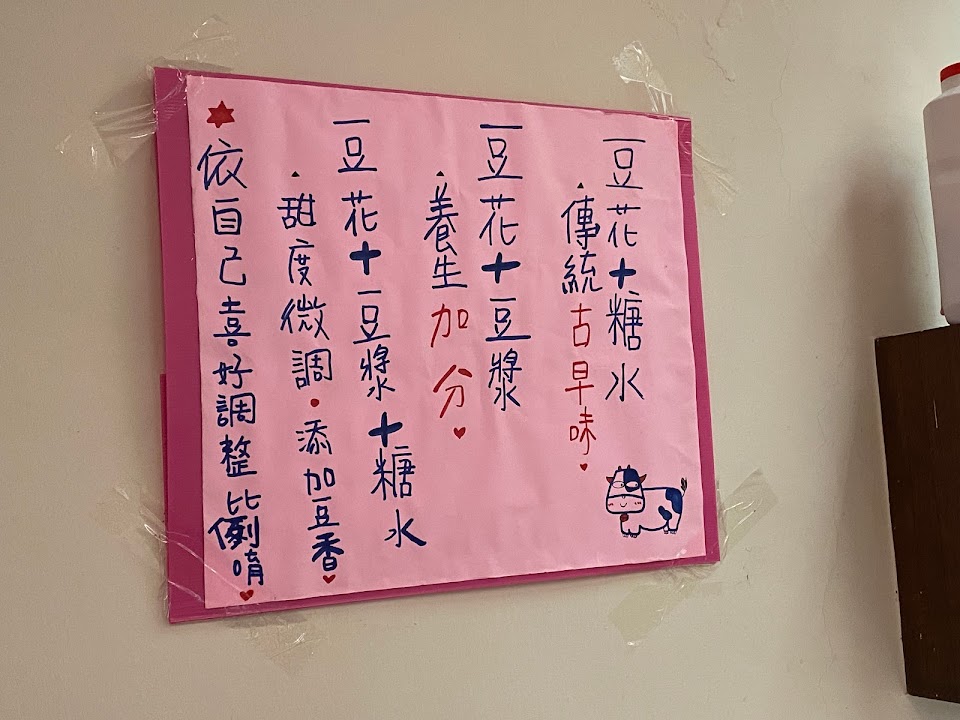 豆花+糖水
▲傳統古早味♥
豆花+豆漿
▲養生加分♥
豆花+豆漿+糖水
▲甜度微調•添加豆香♥
★依自己喜好調整比例唷♥